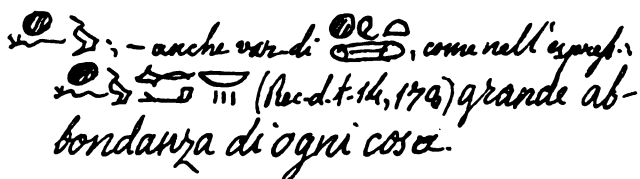 ; - anche var. di , come nell'espress.:
(Rec. d. t. 14, 178) grande ab-
bondanza di ogni cosa.